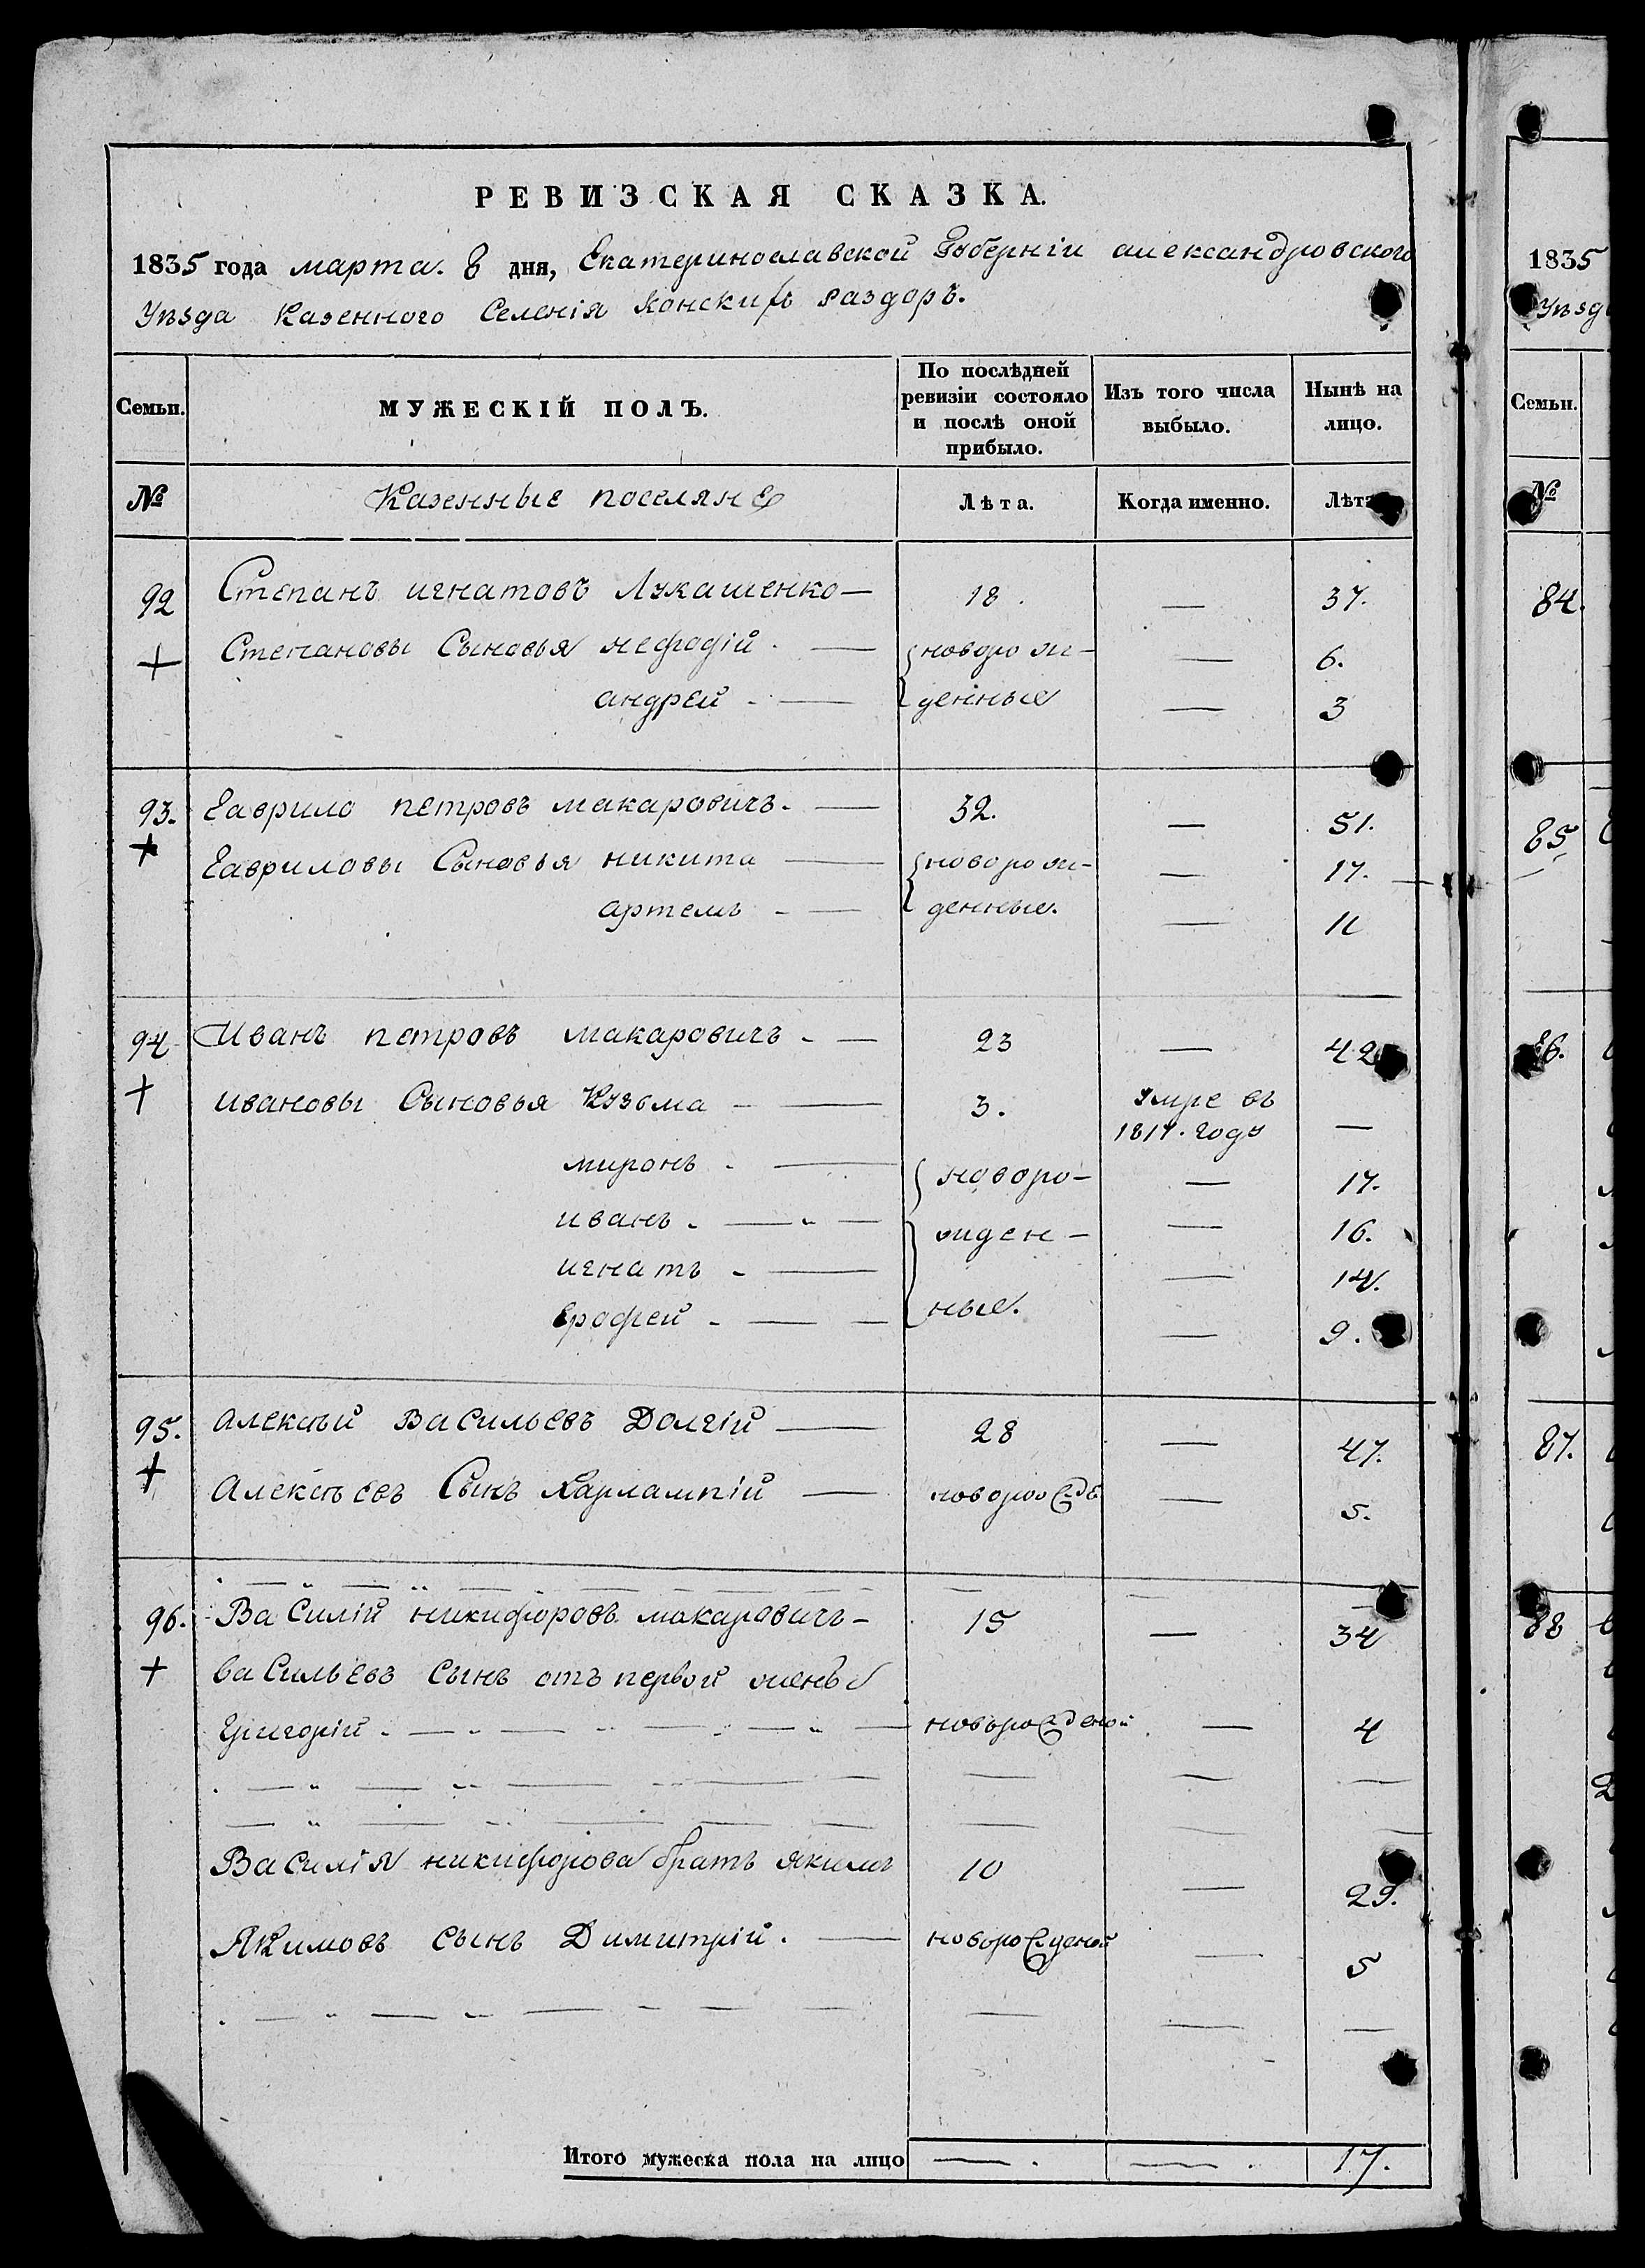 РЕВИЗСКАЯ СКАЗКА.
1835 года марта. 8 дня, Екатеринославской Губерніи александровского
Уѣзда Казенного Селенія Конскихъ раздоръ.
Семьи. МУЖЕСКІЙ ПОЛЪ. По послѣдней ревизіи состояло и послѣ оной прибыло. Изъ того числа выбыло. Нынѣ на лицо.
№ Казенные поселяне Лѣта. Когда именно. Лѣта
92 Степанъ игнатовъ Лукашенко — 18. — 37.
+ Степановы Сыновья мефодій. — новорож- — 6.
андрей - — денные — 3
93. Гаврило петровъ макаровичъ. — 32. — 51.
+ Гавриловы Сыновья никита — новорож- — 17.
артемъ - — денные. — 11
94 Иванъ петровъ макаровичъ - — 23 — 42
+ ивановы Сыновья Кузьма - — 3. умре въ 1817. году —
миронъ - — новоро- — 17.
иванъ - — жден- — 16.
игнатъ - — — 14.
Ерофей - — ные. — 9.
95. алексѣй Васильевъ Долгій — 28 — 47.
+ Алексѣевъ Сынъ Харлампій — новорожд — 5.
96. Василій никифоровъ макаровичъ — 15 — 34
+ васильевъ сынъ отъ первой жены
Григорій - — новорожденой — 4
Василія никифорова братъ якимъ 10 — 29.
Якимовъ сынъ Димитрій. — новорожденой — 5
Итого мужеска пола на лицо — — 17.
1835
Уѣзд
Семьи.
№
84.
85
86.
87.
88